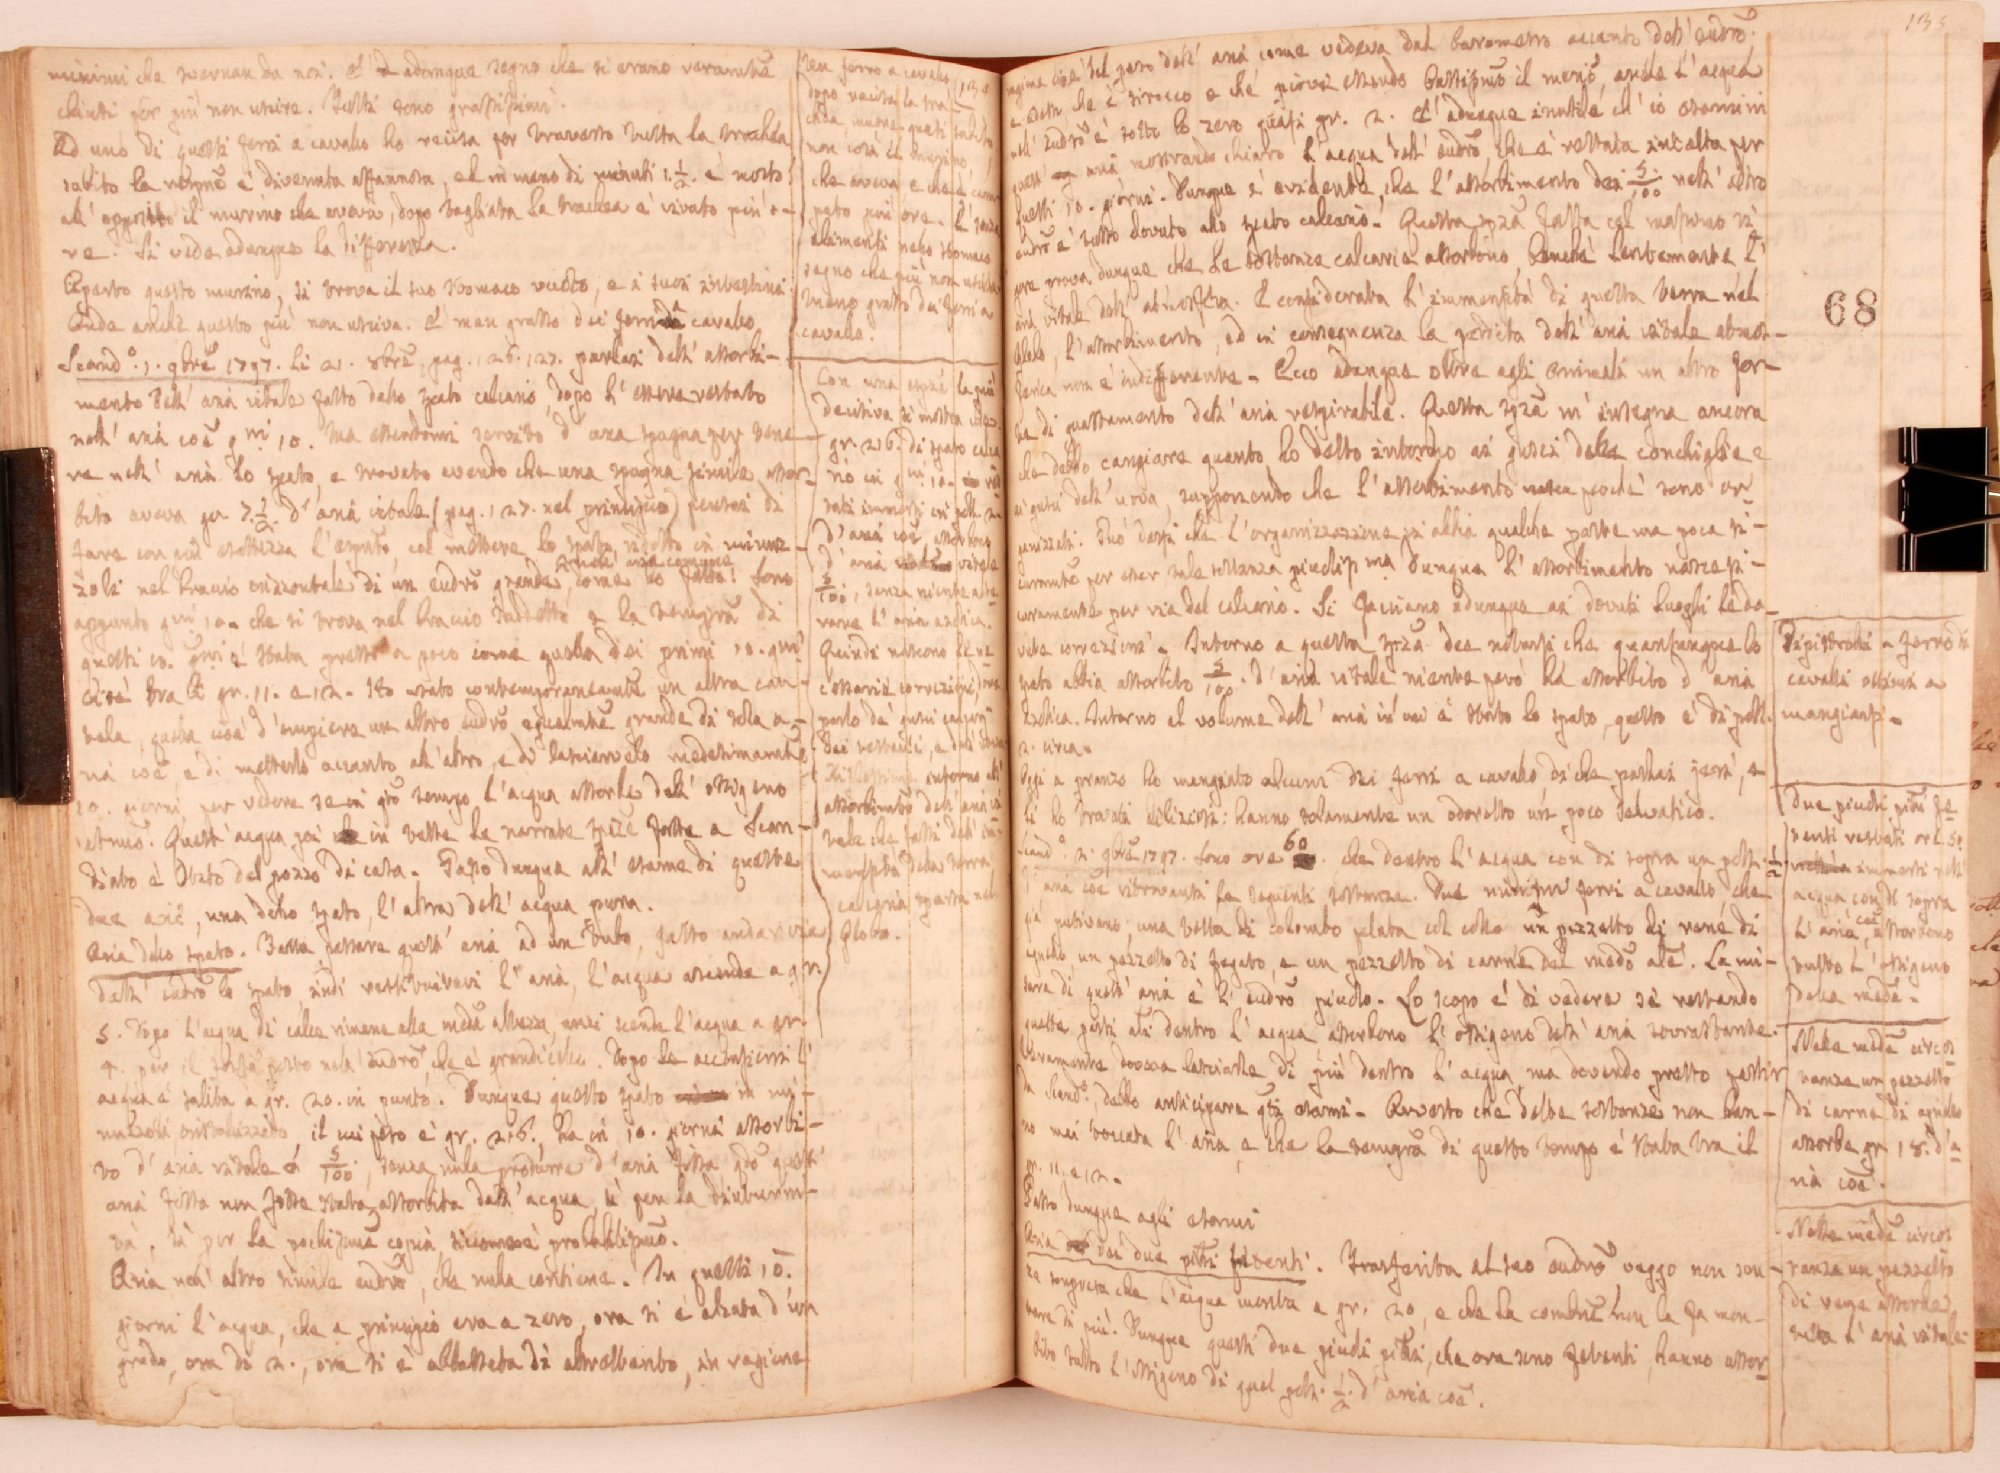 minimi che
chiusi per più non uscire. Tutti sono grassissimi.
Ad uno di questi ferri a cavallo ho recisa per traverso tutta la trachea
subito la respne è divenuta affannosa, ed in meno di minuti 1.½. è morto
all' opposto il murino che aveva, dopo tagliata la trachea è vivuto più o-
re. Si vede adunque la differenza.
Aperto questo murino, si trova il suo stomaco vuoto, e i suoi intestini.
Onde anche questo più non usciva. È men grasso dei ferri a cavallo
Scando. 1. 9bre 1797. Li 21. 8bre, pag. 126. 127. parlai dell' assorbi-
mento dell' aria vitale fatto dallo spato calcario, dopo l' essere restato
nell' aria coe gni 10. Ma essendomi servito d' una spugna per tene-
re nell' aria lo spato, e trovato avendo che una spugna simile assor-
bita aveva gr 7.½. d' aria vitale (pag. 127. nel principio) pensai di
fare con più esattezza l' esprto, col mettere lo spato ridotto in minuz-
zoli nel braccio orizzontale di un eudro grande, come ho fatto. Sono
appunto gni 10. che si trova nel braccio suddetto e la tempra di
questi 10. gni è stata presso a poco come quella dei primi 10. gni
cioè tra li gr. 11. e 12. Ho usato contemporaneamte un altra cau-
tela, quella cioè d' empiere un altro eudro egualmte grande di sola a-
ria coe, e di metterlo accanto all' altro, e di lasciarvelo medesimamte
10. giorni, per vedere se in qto tempo l' acqua assorbe dell' ossigeno
Quest' acqua poi in tutte le narrate spze fatte a Scan-
diano è stata del pozzo di casa. Passo dunque all' esame di queste
due arie, una dello spato, l' altra dell' acqua pura.
Aria dello spato. Fatta passare quest' aria ad un tubo, fatto andar via
dall' eudro lo spato, indi restituitavi l' aria, l' acqua ascende a gr.
5. Dopo l' acqua di calce rimane alla meda altezza, anzi scende l' acqua a gr.
4. per il nell' eudro, che è grandicello. Dopo le accensioni l'
acqua è salita a gr. 20. in punto. Dunque questo spato in mi-
nuzzoli, il cui peso è gr. 216. ha in 10. giorni assorbi-
to d' aria vitale i 5/100, senza nulla produrre d' aria fissa
aria fissa non fosse stata assorbita dall' acqua,
tà, sì per la pochissima copia, è probabilissimo.
Aria nell' altro simile eudro, che nulla contiene. In questi 10.
giorni l' acqua, che a principio era a zero, ora si è alzata d' un
grado, ora di 2., ora si è abbassata di altrettanto, in ragione
Men ferro a cavallo
dopo recisa la tra-
chea, muore quasi subito,
non così il murino
che aveva e che è cam-
pato più ore. È senza
alimenti nello stomaco
segno che più non usciva.
Meno grasso dei ferri a
cavallo.
Con una spza la più
decisiva si mostra che
gr. 216. di spato calca-
rio in gni 10. re-
stati immersi in poll. 2.
d' aria coe assorbono
d' aria vitale
5/100, senza niente alte-
rare l' aria azotica.
Quindi nascono le ne-
cessarie correzioni, ove
parlo de' gusci
dei testacei, e dell' uova
Riflessione intorno all'
assorbimto dell' aria vi-
tale che fassi dall' im-
mensità della terra
calcaria sparsa nel
Globo.
135
68
del peso dell' aria come vedeva dal barometro accanto dell' eudro;
che è scirocco e che piove essendo bassissimo il merio, anche l' acqua
nell' eudro è sotto lo zero quasi gr. 2. È adunque inutile ch' io esamini
quest' aria, mostrando chiaro l' acqua dell' eudro che è restata intatta per
questi 10. giorni. Dunque è evidente, che l' assorbimento dei 5/100 nell' altro
eudro è tutto dovuto allo spato calcario. Questa spza fatta col massimo ri-
gore prova dunque che le sostanze calcarie assorbono, benchè lentamente l'
aria vitale dell' atmosfera. E considerata l' immensità di questa terra nel
globo, l' assorbimento, ed in conseguenza la perdita dell' aria vitale atmos-
ferica non è indifferente. Ecco adunque oltre agli animali un altro fon-
te di guastamento dell' aria respirabile. Questa spza m' insegna ancora
che debbo cangiare quanto ho detto intorno ai gusci delle conchiglie e
ai gusci dell' uova, supponendo che l' assorbimento nasca perchè sono or-
ganizzati. Può darsi che l' organizzazione vi abbia qualche parte ma poca si-
curamte per esser tale sostanza piccolissma. Dunque l' assorbimento nasce si-
curamente per via del calcario. Si facciano adunque ai dovuti luoghi le do-
vute correzioni. Intorno a questa spza dee notarsi che quantunque lo
spato abbia assorbito 5/100. d' aria vitale niente però ha assorbito d' aria
azotica. Intorno al volume dell' aria in cui è stato lo spato, questo è di poll.
2. circa.
Oggi a pranzo ho mangiato alcuni dei ferri a cavallo di che parlai jeri, e
li ho trovati deliziosi: hanno solamente un odoretto un poco selvatico.
Scando. 2. 9bre 1797. Sono ore 60. che dentro l' acqua con di sopra un poll. ½
d' aria coe ritrovansi le seguenti sostanze. Due minimi ferri a cavallo, che
già putivano; una testa di colombo pelata col collo un pezzetto di rene di
agnello un pezzetto di fegato, e un pezzetto di carne del medo ale. La mi-
sura di quest' aria è l' eudro piccolo. Lo scopo è di vedere se restando
queste parti ali dentro l' acqua assorbono l' ossigeno dell' aria sovrastante.
Veramente doveva lasciarle di più dentro l' acqua, ma dovendo presto partir
da Scando, debbo anticipare gli esami. Avverto che dette sostanze non han-
no mai toccata l' aria, e che la tempra di questo tempo è stata tra il
gr. 11. e 12.
Passo dunque agli esami
Aria dei due pitri fetenti. Trasferita al suo eudro veggo non sen-
za sorpresa che l' acqua monta a gr. 20, e che la combne non la fa mon-
tare di più. Dunque questi due piccoli pitri, che ora sono fetenti, hanno assor-
bito tutto l' ossigeno di quel poll. ½. d' aria coe.
Pipistrelli a ferro di
cavallo ottimi a
mangiarsi.
Due piccoli pitri fe-
tenti restati ore 60.
immersi nell'
acqua con di sopra
l' aria coe, assorbono
tutto l' ossigeno
della meda.
Nelle mede circos-
tanze un pezzetto
di carne di agnello
assorbe gr. 18. d' a-
ria coe.
Nelle mede circos-
tanze un pezzetto
di rene assorbe
tutta l' aria vitale.